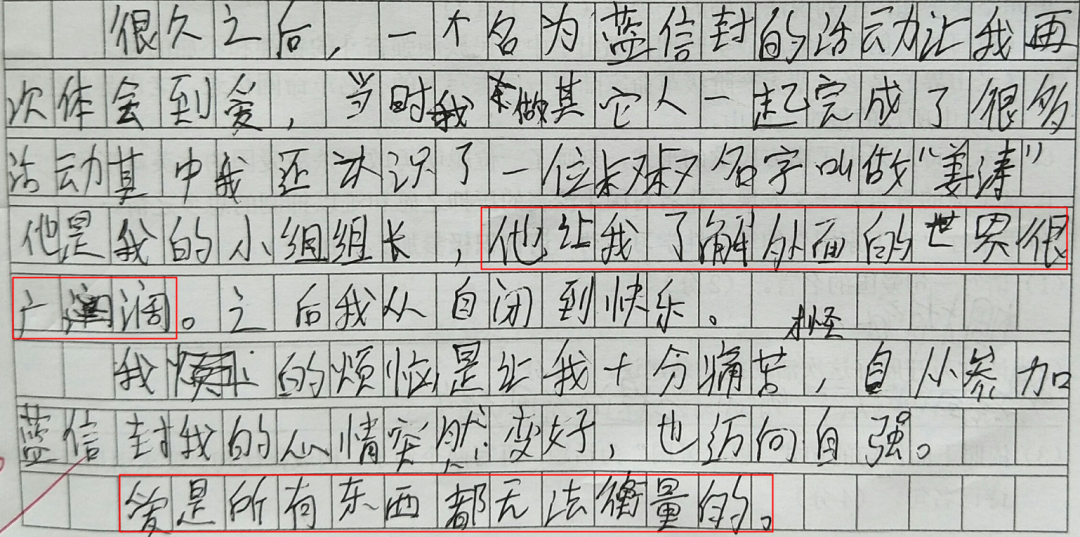 很久之后，一个名为蓝信封的活动让我再
次体会到爱，当时我做其它人一起完成了很多
活动其中我还认识了一位叔叔名字叫做“姜涛”
他是我的小组组长，他让我了解外面的世界很
广阔。之后我从自闭到快乐。
我的烦恼是让我十分痛苦，自从参加
蓝信封我的心情突然变好，也迈向自强。
爱是所有东西都无法衡量的。